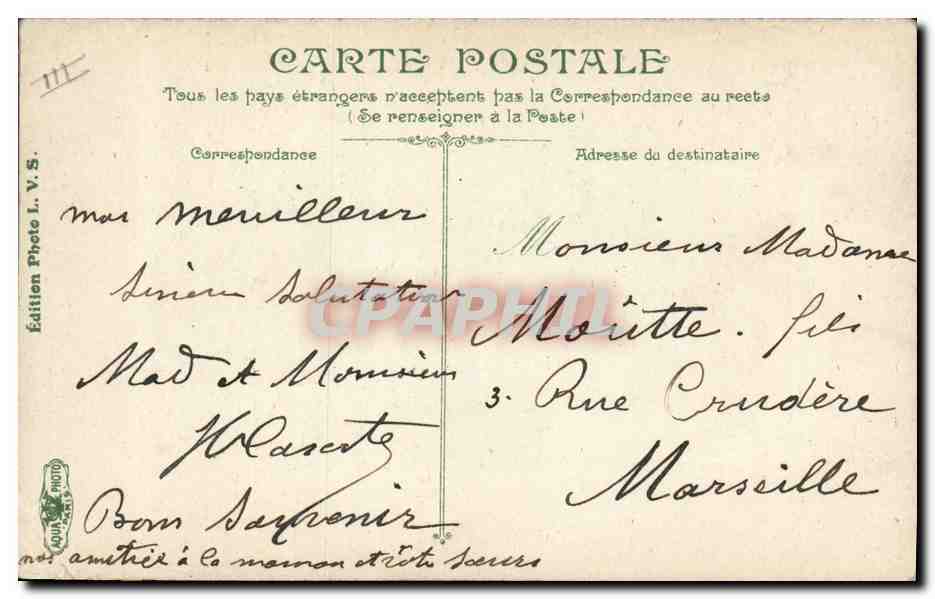 III
CARTE POSTALE
Tous les pays étrangers n'acceptent pas la Correspondance au recto
(Se renseigner à la Poste)
Correspondance
mas meuilleur
Sinceru Salutation
Mad et Monsieur
Bons Souvenir
nos amitiée à la maman et sœurs
Adresse du destinataire
Monsieur Madame
Moritte. fils
3. Rue Crudère
Marseille
Édition Photo L. V. S.
AQUA PHOTO
PARIS
CPAPHIL